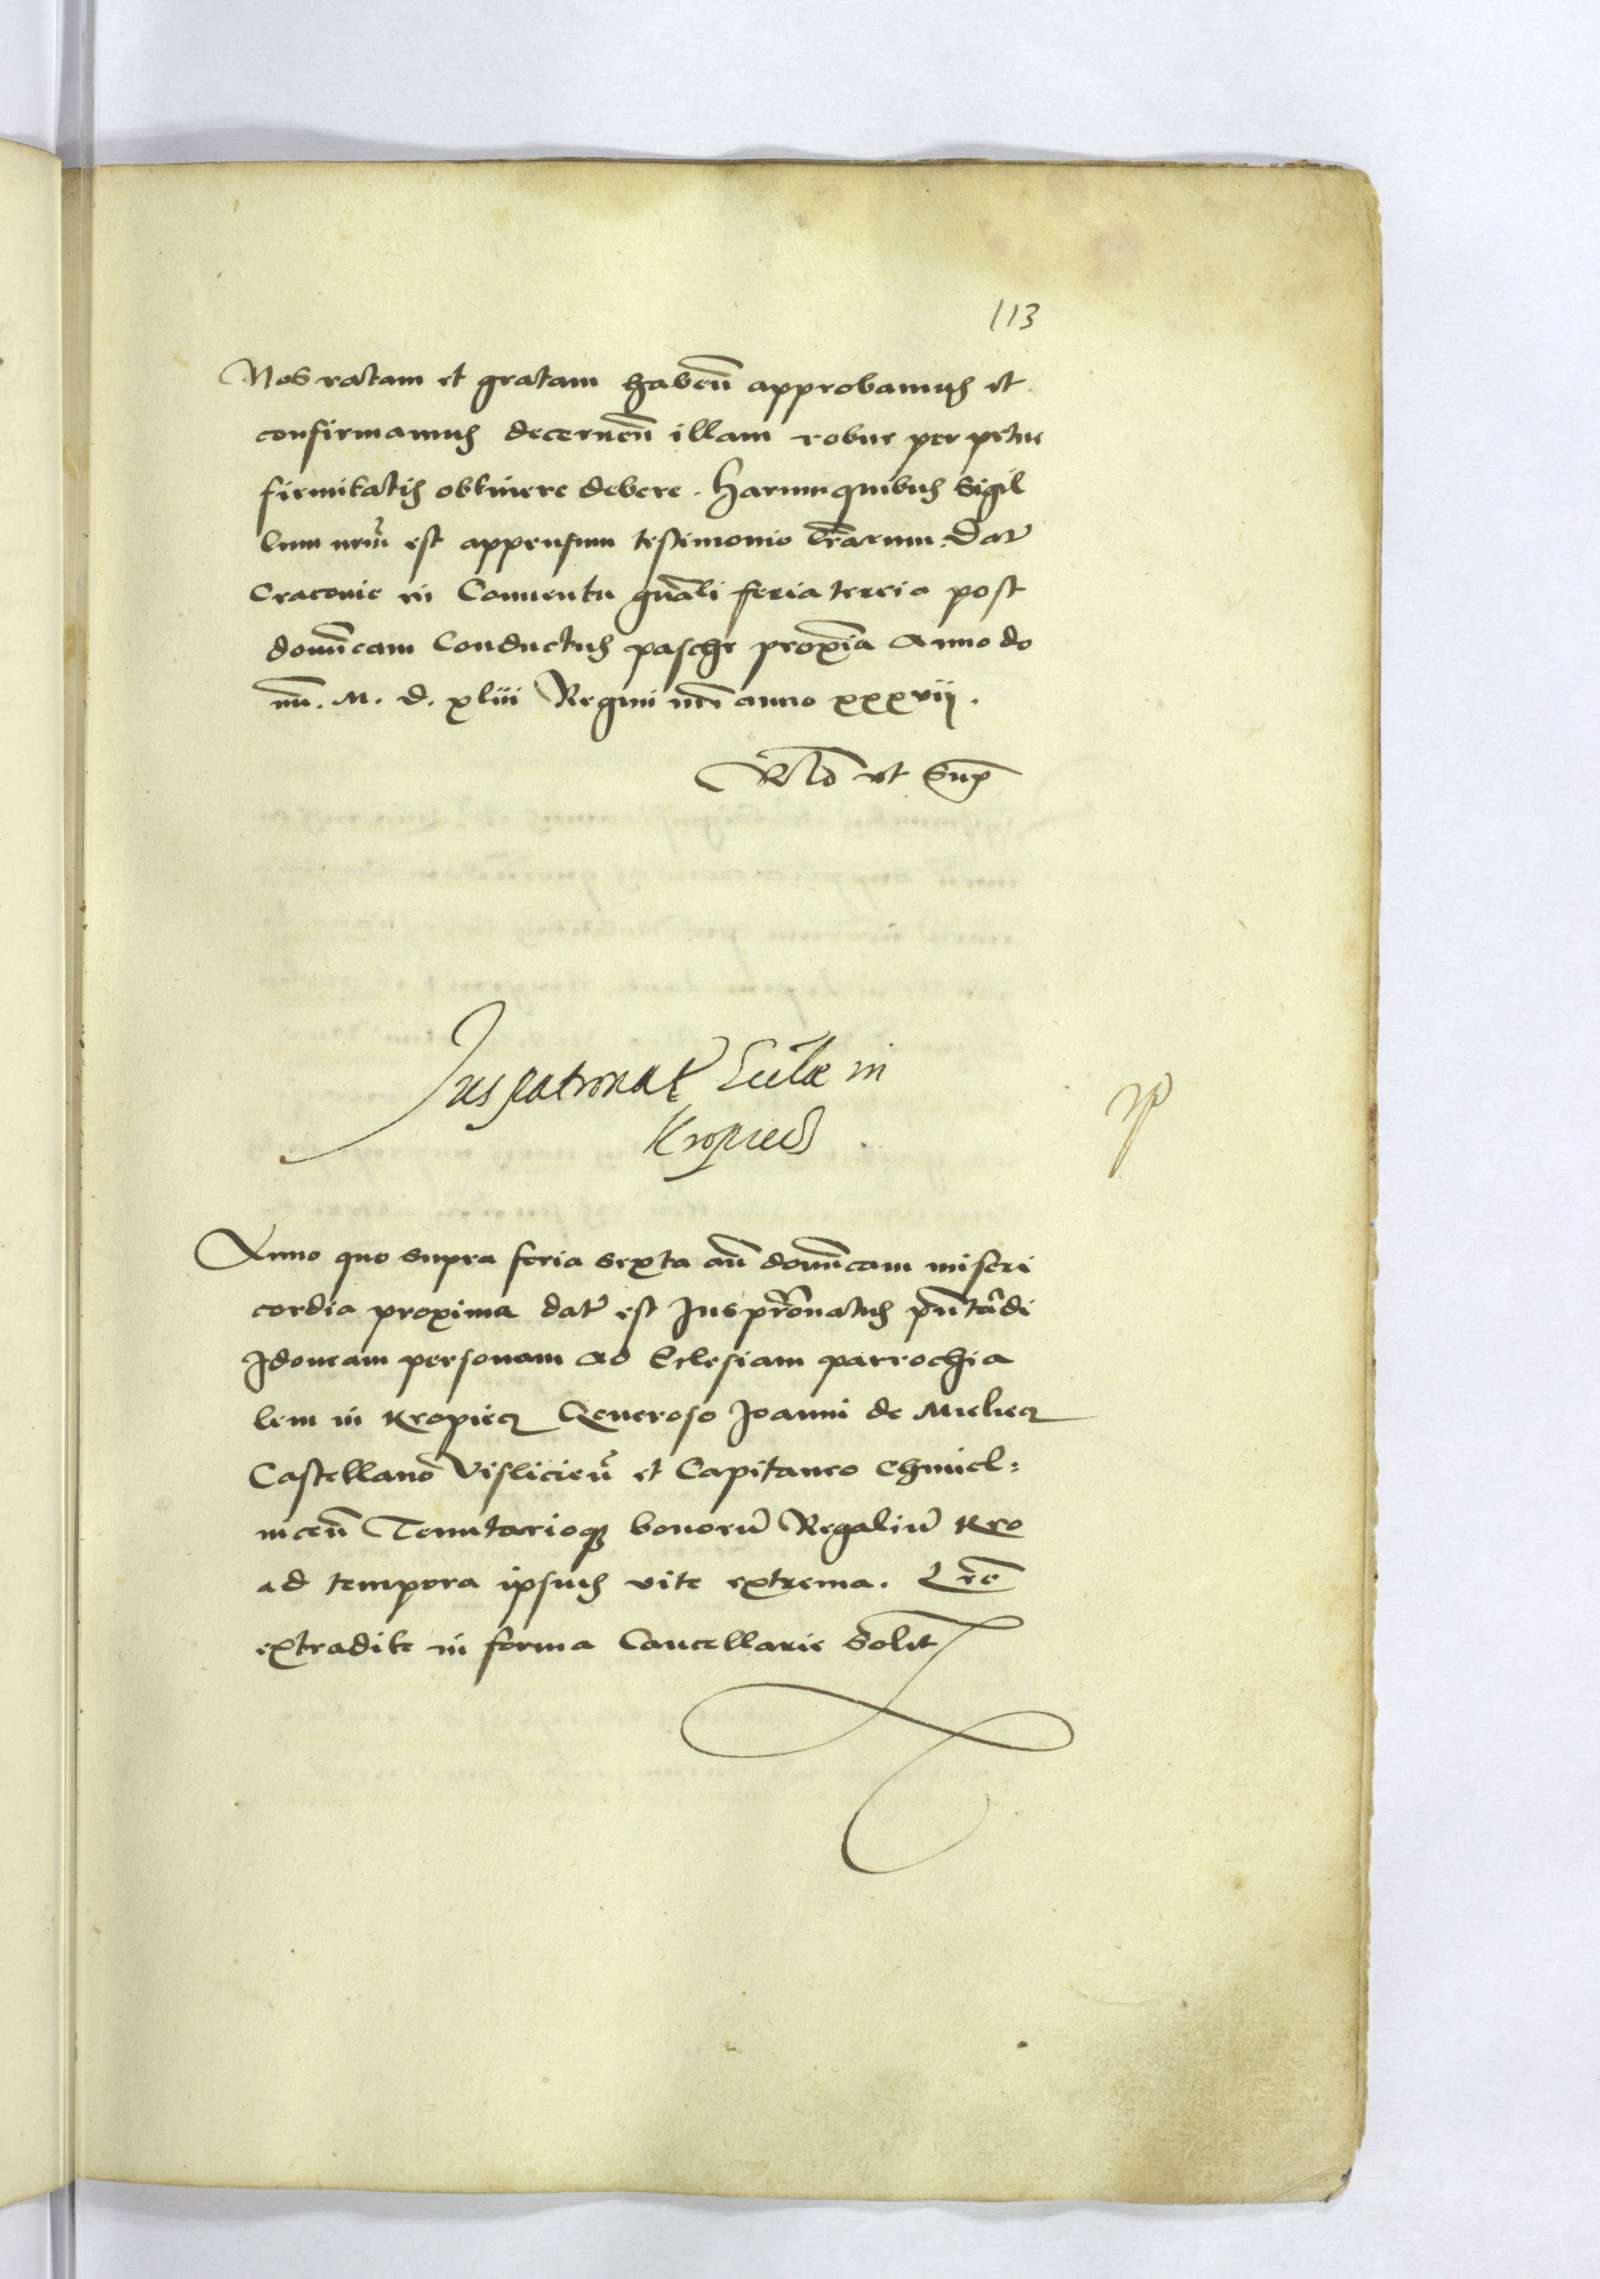 113
Nos ratam et gratam haben̄ approbamus et
confirmamus decernen̄ illam robur perpetue
firmitatis obtinere debere. Harum quibus Sigil
lum nr̄m est appensum testimonio lr̄arum. Dat̄
Cracovie in Conventu gn̄ali feria tercia post
domīcam Conductus pasche proxīa Anno do
mī. M. d. xliii Regni nr̄i anno xxxvii.
Rlō ut Supᷓ
Juspatronat9 Ecclæ in
Kropiecz
Anno quo supra feria sexta an̄ domīcam miseri
cordia proxima dat̄ est Juspr̄onatus pn̄tādi
Idoneam personam ad Eclesiam parrochia
lem in Kropiecz Generoso Joanni de Mielecz
Castellano Vislicien̄ et Capitaneo Chmiel=
nicen̄ Tenutarioqꝫ bonorū Regaliū Kro
ad tempora ipsius vite extrema. Lr̄e
extradite in forma Cancellarie Solit